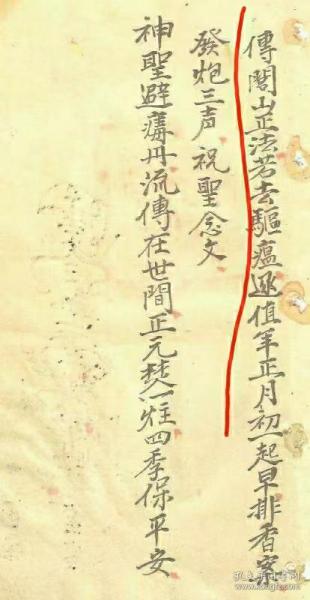 傳閭山正法若去驅瘟逐值年正月初一起早排香案
發炮三声祝聖念文
神聖避瘟丹流傳在世間正元焚一炷四季保平安